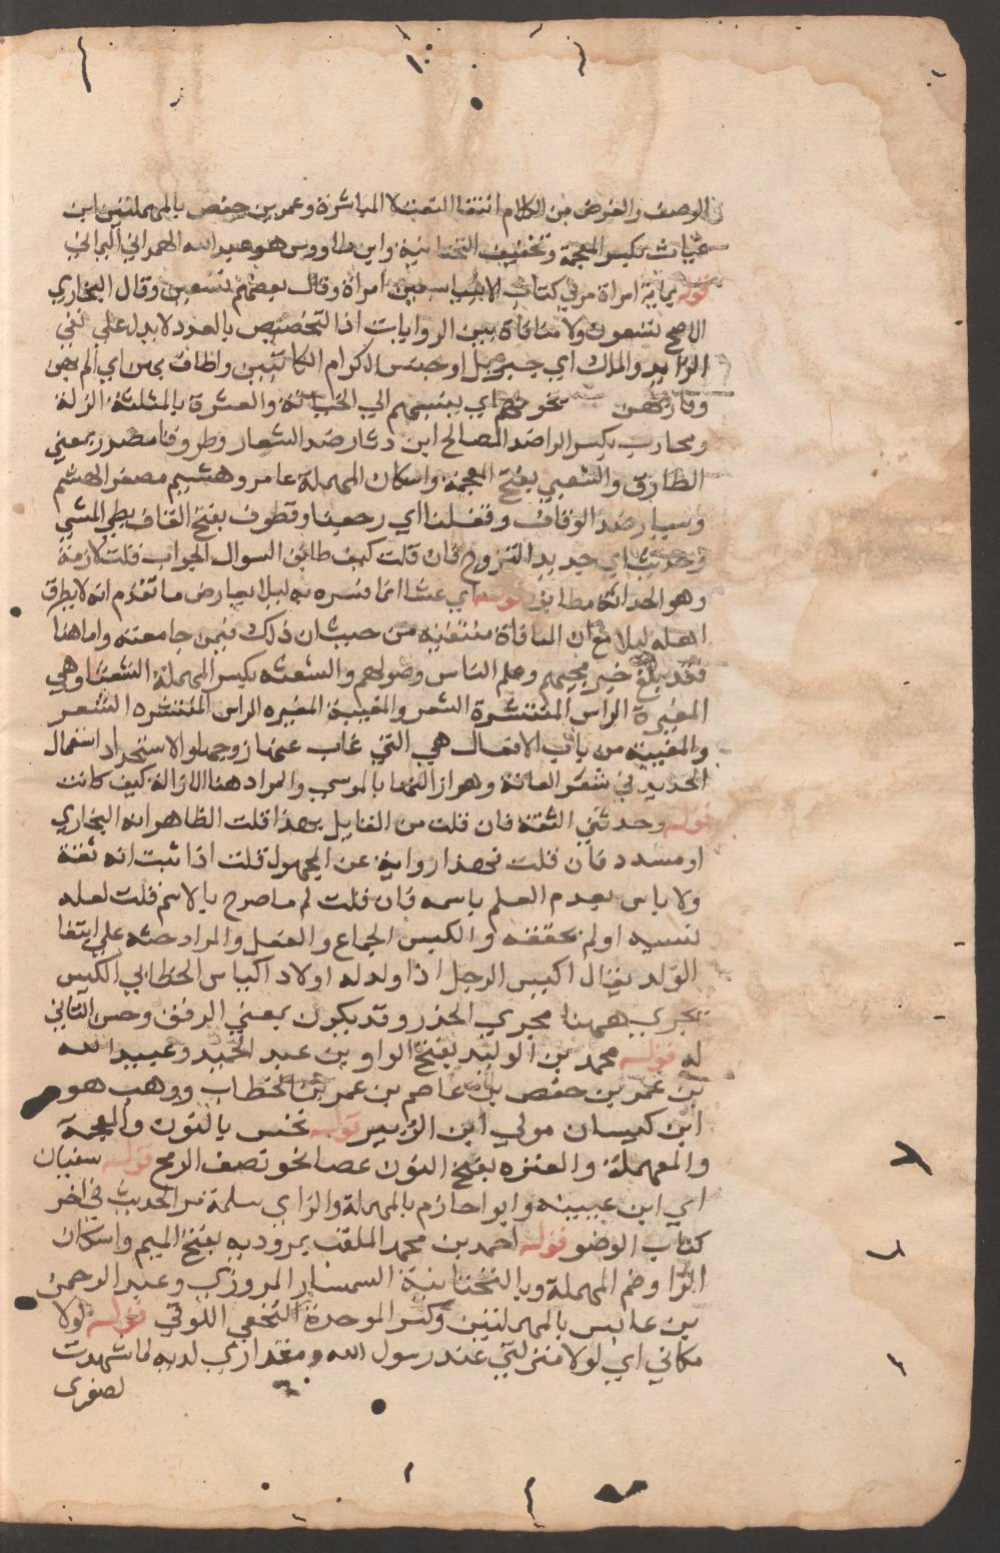 الوصف والغرض من الكلام انتفا التعنت لا المباشرة وعمر بن حفص بالمهملتين ابن
غياث بكسر المعجمة وتخفيف التحتانية وابن طاووس هو عبد الله الهمراني اليماني
قوله بماية امراة مر في كتاب الانبيا سبعين امراة وقال بعضهم تسعين وقال البخاري
الاصح تسعون ولا منافاة بين الروايات اذا التخصيص بالعدد لا يدل على نفي
الزايد والملك اي جبريل او جنس الكرام الكاتبين واطاف بهن اي الم بهن
وقاربهن يتخونهم اي ينسبهم الي الخيانة والعثرة بالمثلثة الزلة
ومحارب بكسر الرا ضد المصالح ابن دثار ضد الشعار وطروقا مصدر بمعني
الطارق والشعبي بفتح المعجمة واسكان المهملة عامر وهشيم مصغر الهشم
وسيار ضد الوقاف وقفلنا اي رجعنا وقطوف بفتح القاف بطي المشي
وحديث اي جديد التزوج فان قلت كيف طابق السوال الجواب قلت لازمه
وهو الحداثة مطابق قوله اي عشا انما فسره به ليلا يعارض ما تقدم انه لا يطرق
اهله ليلا مع ان المنافاة منتفية من حيث ان ذلك فيمن جا بغتة واما هنا
فقد بلغ خبر مجيهم وعلم الناس وصولهم والشعثه بكسر المهملة الشعثا وهي
المغبرة الراس المنتشرة الشعر والمغيبة المغبره الراس المنتشره الشعر
والمغيبة من باب الافعال هي التي غاب عنها زوجها والاستحداد استعمال
الحديد في شعر العانة وهو ازالتها بالموسي والمراد هنا الازالة كيف كانت
قوله وحدثني الثقة فان قلت من القايل بهذا قلت الظاهر انه البخاري
او مسدد فان قلت فهذا رواية عن المجهول قلت اذا ثبت انه ثقة
ولا باس بعدم العلم باسمه فان قلت لم ما صرح بالاسم قلت لعله
نسيه او لم يحققه والكيس الجماع والعقل والمراد حثه على ابتغا
الولد يقال اكيس الرجل اذا ولد له اولاد اكياس الخطابي الكيس
يجري ههنا مجري الحذر وقد يكون بمعني الرفق وحسن التاني
له قوله محمد بن الوليد بفتح الواو بن عبد الحميد وعبيد الله
بن عمر بن حفص بن عاصم بن عمر بن الخطاب ووهب هو
ابن كيسان مولي ابن الزبير قوله نخس بالنون والمعجمة
والمهملة والعنزه بفتح النون عصا نحو نصف الرمح قوله سفيان
اي ابن عيينه وابو حازم بالمهملة والزاي سلمة مر الحديث في اخر
كتاب الوضو قوله احمد بن محمد الملقب بمردويه بفتح الميم واسكان
الرا وضم المهملة وبالتحتانية السمسار المروزي وعبد الرحمن
بن عابس بالمهملتين وكسر الموحدة النخعي الكوفي قوله لولا
مكاني اي لولا منزلتي عند رسول الله ومقداري لديه لما شهدت
لصغري